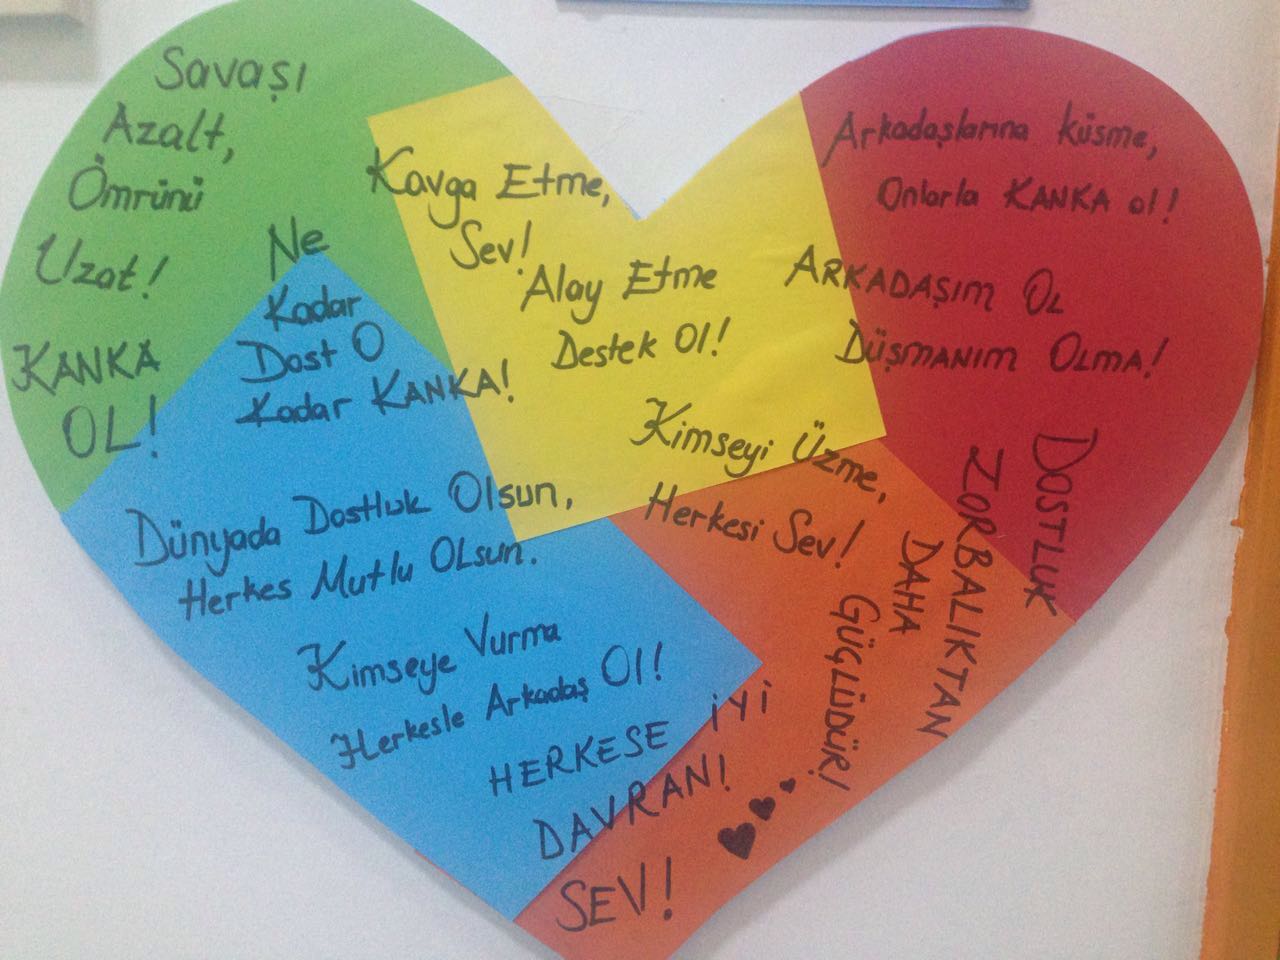 Savaşı
Azalt,
Ömrünü
Uzat!
KANKA
OL!
Ne
Kadar
Dost O
Kadar KANKA!
Kavga Etme,
Sev!
Alay Etme
Destek Ol!
Arkadaşlarına küsme,
Onlarla KANKA ol!
ARKADAŞIM OL
DÜŞMANIM OLMA!
Kimseyi Üzme,
Herkesi Sev!
DOSTLUK
ZORBALIKTAN
DAHA
GÜÇLÜDÜR!
Dünyada Dostluk Olsun,
Herkes Mutlu OLsun.
Kimseye Vurma
Herkesle Arkadaş Ol!
HERKESE İYİ
DAVRAN!
SEV!